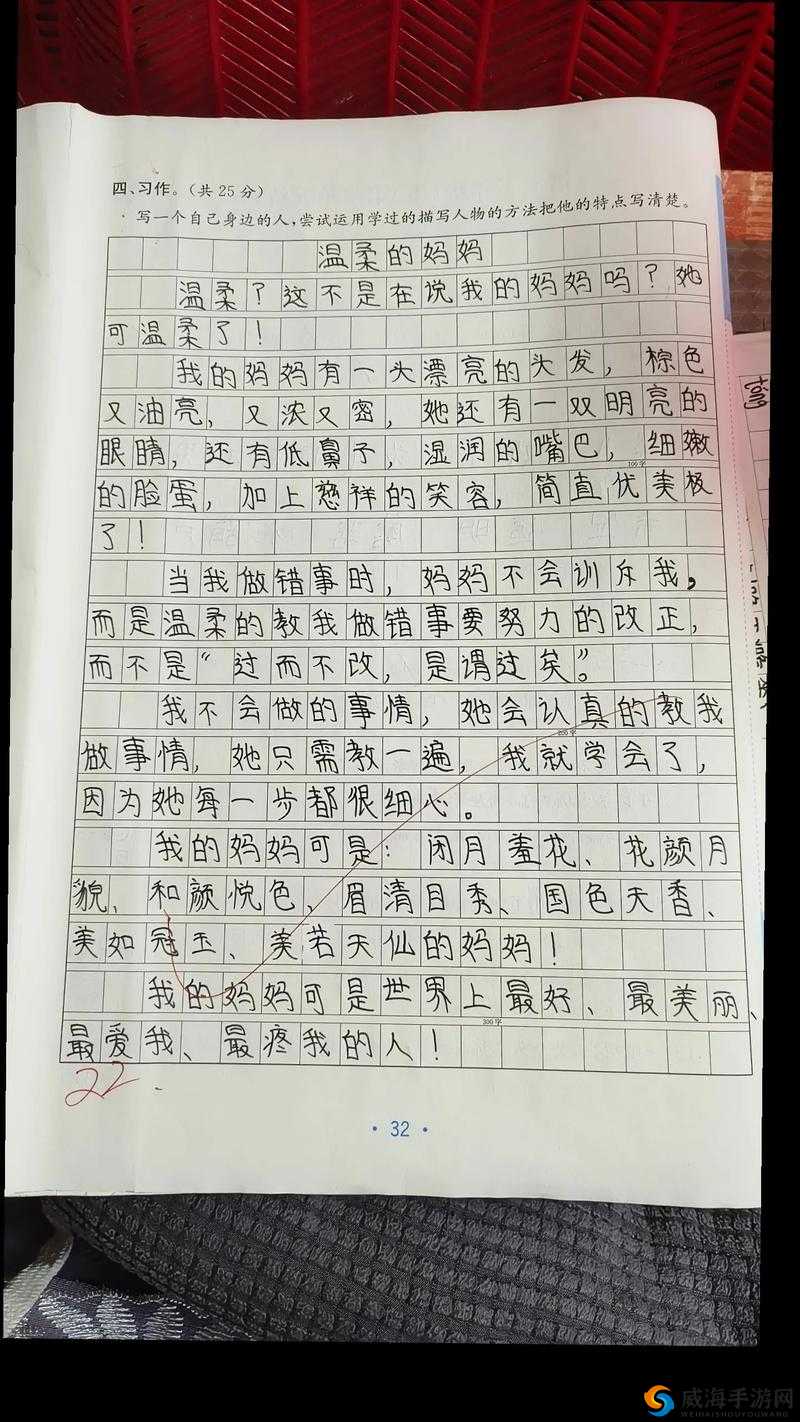 四、习作。(共25分)
写一个自己身边的人,尝试运用学过的描写人物的方法把他的特点写清楚。
温柔的妈妈
温柔？这不是在说我的妈妈吗？她
可温柔了！
我的妈妈有一头漂亮的头发，棕色
又油亮，又浓又密，她还有一双明亮的
眼睛，还有低鼻子，湿润的嘴巴，细嫩
100字
的脸蛋，加上慈祥的笑容，简直优美极
了！
当我做错事时，妈妈不会训斥我，
而是温柔的教我做错事要努力的改正，
而不是“过而不改，是谓过矣”。
我不会做的事情，她会认真的教我
200字
做事情，她只需教一遍，我就学会了，
因为她每一步都很细心。
我的妈妈可是：闭月羞花、花颜月
貌、和颜悦色、眉清目秀、国色天香、
美如冠玉、美若天仙的妈妈！
我的妈妈可是世界上最好、最美丽、
300字
最爱我、最疼我的人！
22
· 32 ·
威海手游网
WEIHAISHOUYOUWANG